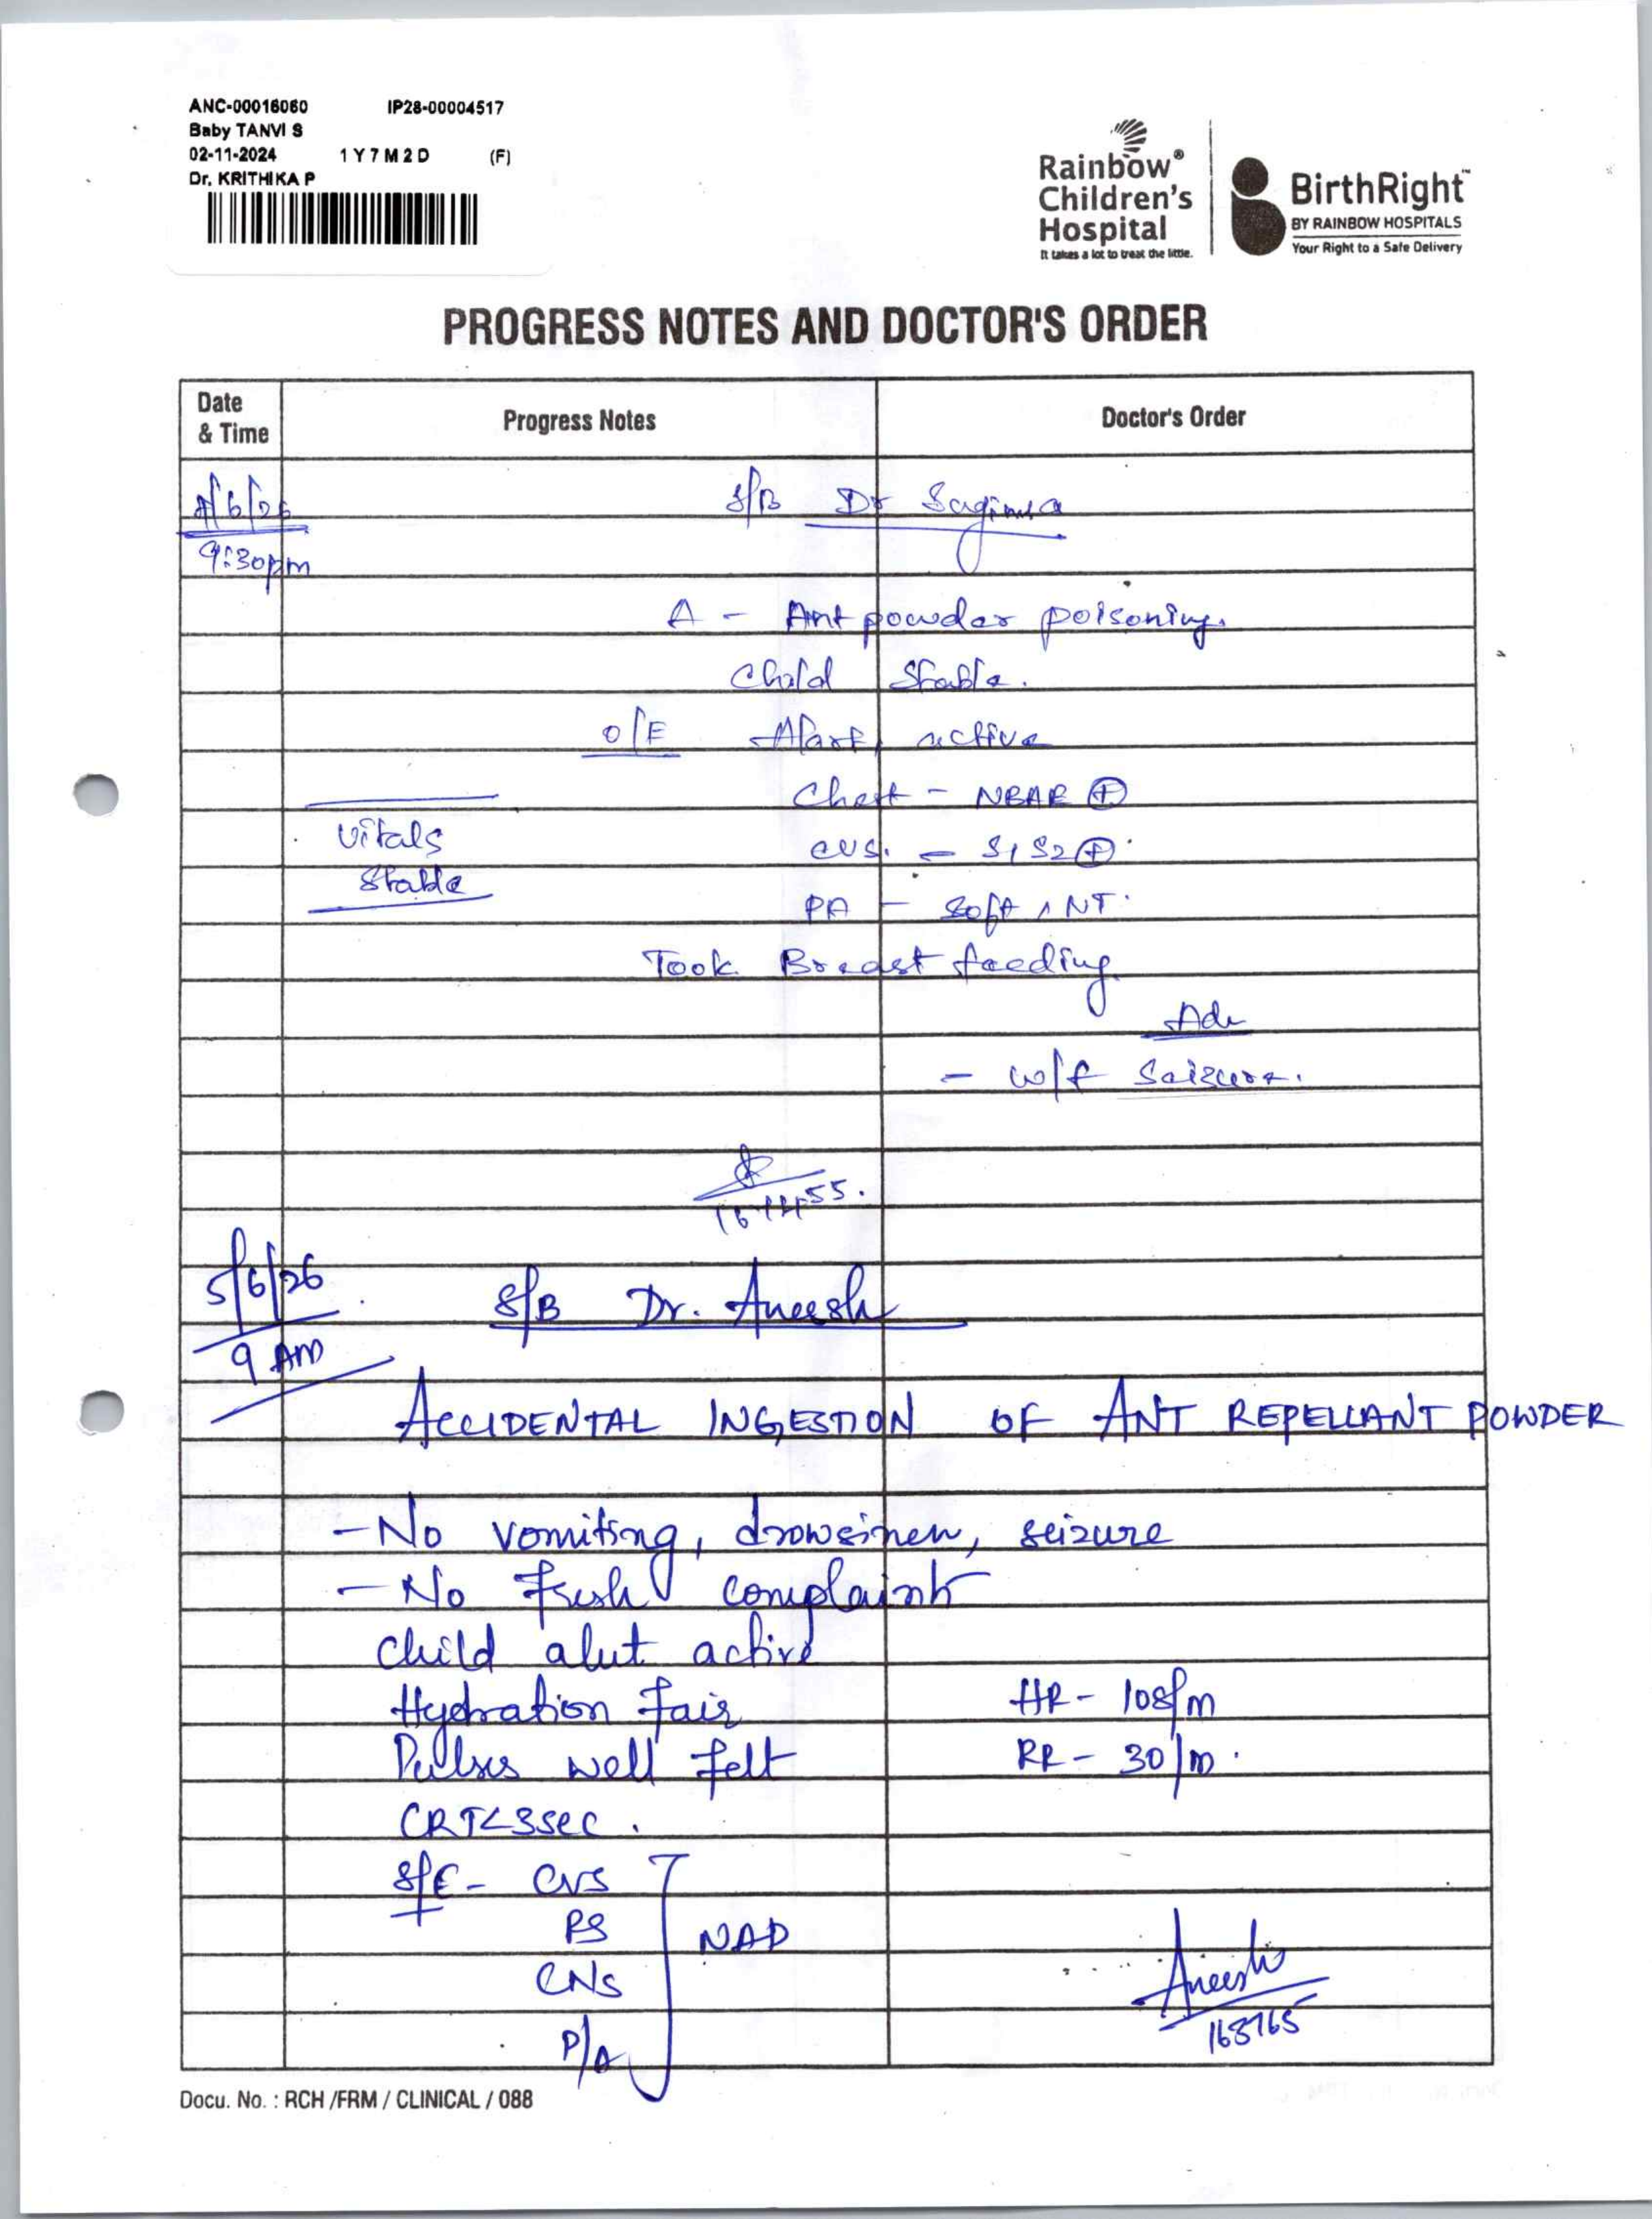 ANC-00016060 IP28-00004517
Baby TANVI S
02-11-2024 1 Y 7 M 2 D (F)
Dr. KRITHIKA P
Rainbow®
Children's
Hospital
It takes a lot to treat the little.
BirthRight™
BY RAINBOW HOSPITALS
Your Right to a Safe Delivery
PROGRESS NOTES AND DOCTOR'S ORDER
Date & Time Progress Notes Doctor's Order
4/6/26 S/B Dr
9:30pm
A - Ant powder poisoning.
Child Stable.
O/E Alert, active
Chest - NBAE ⊕
Vitals CVS. - S1 S2 ⊕
Stable PA - Soft, NT.
Took Breast feeding.
Adv
- w/f Seizure.
5/6/26 S/B Dr. Aneesh
9 AM
ACCIDENTAL INGESTION OF ANT REPELLANT POWDER
- No vomiting, drowsiness, seizure
- No Fresh complaints
Child alert active
Hydration fair HR - 108/m
Pulses well felt RR - 30/m.
CRT<3sec.
S/E - CVS
PS NAD
CNS
P/A
Aneesh
168765
Docu. No. : RCH /FRM / CLINICAL / 088